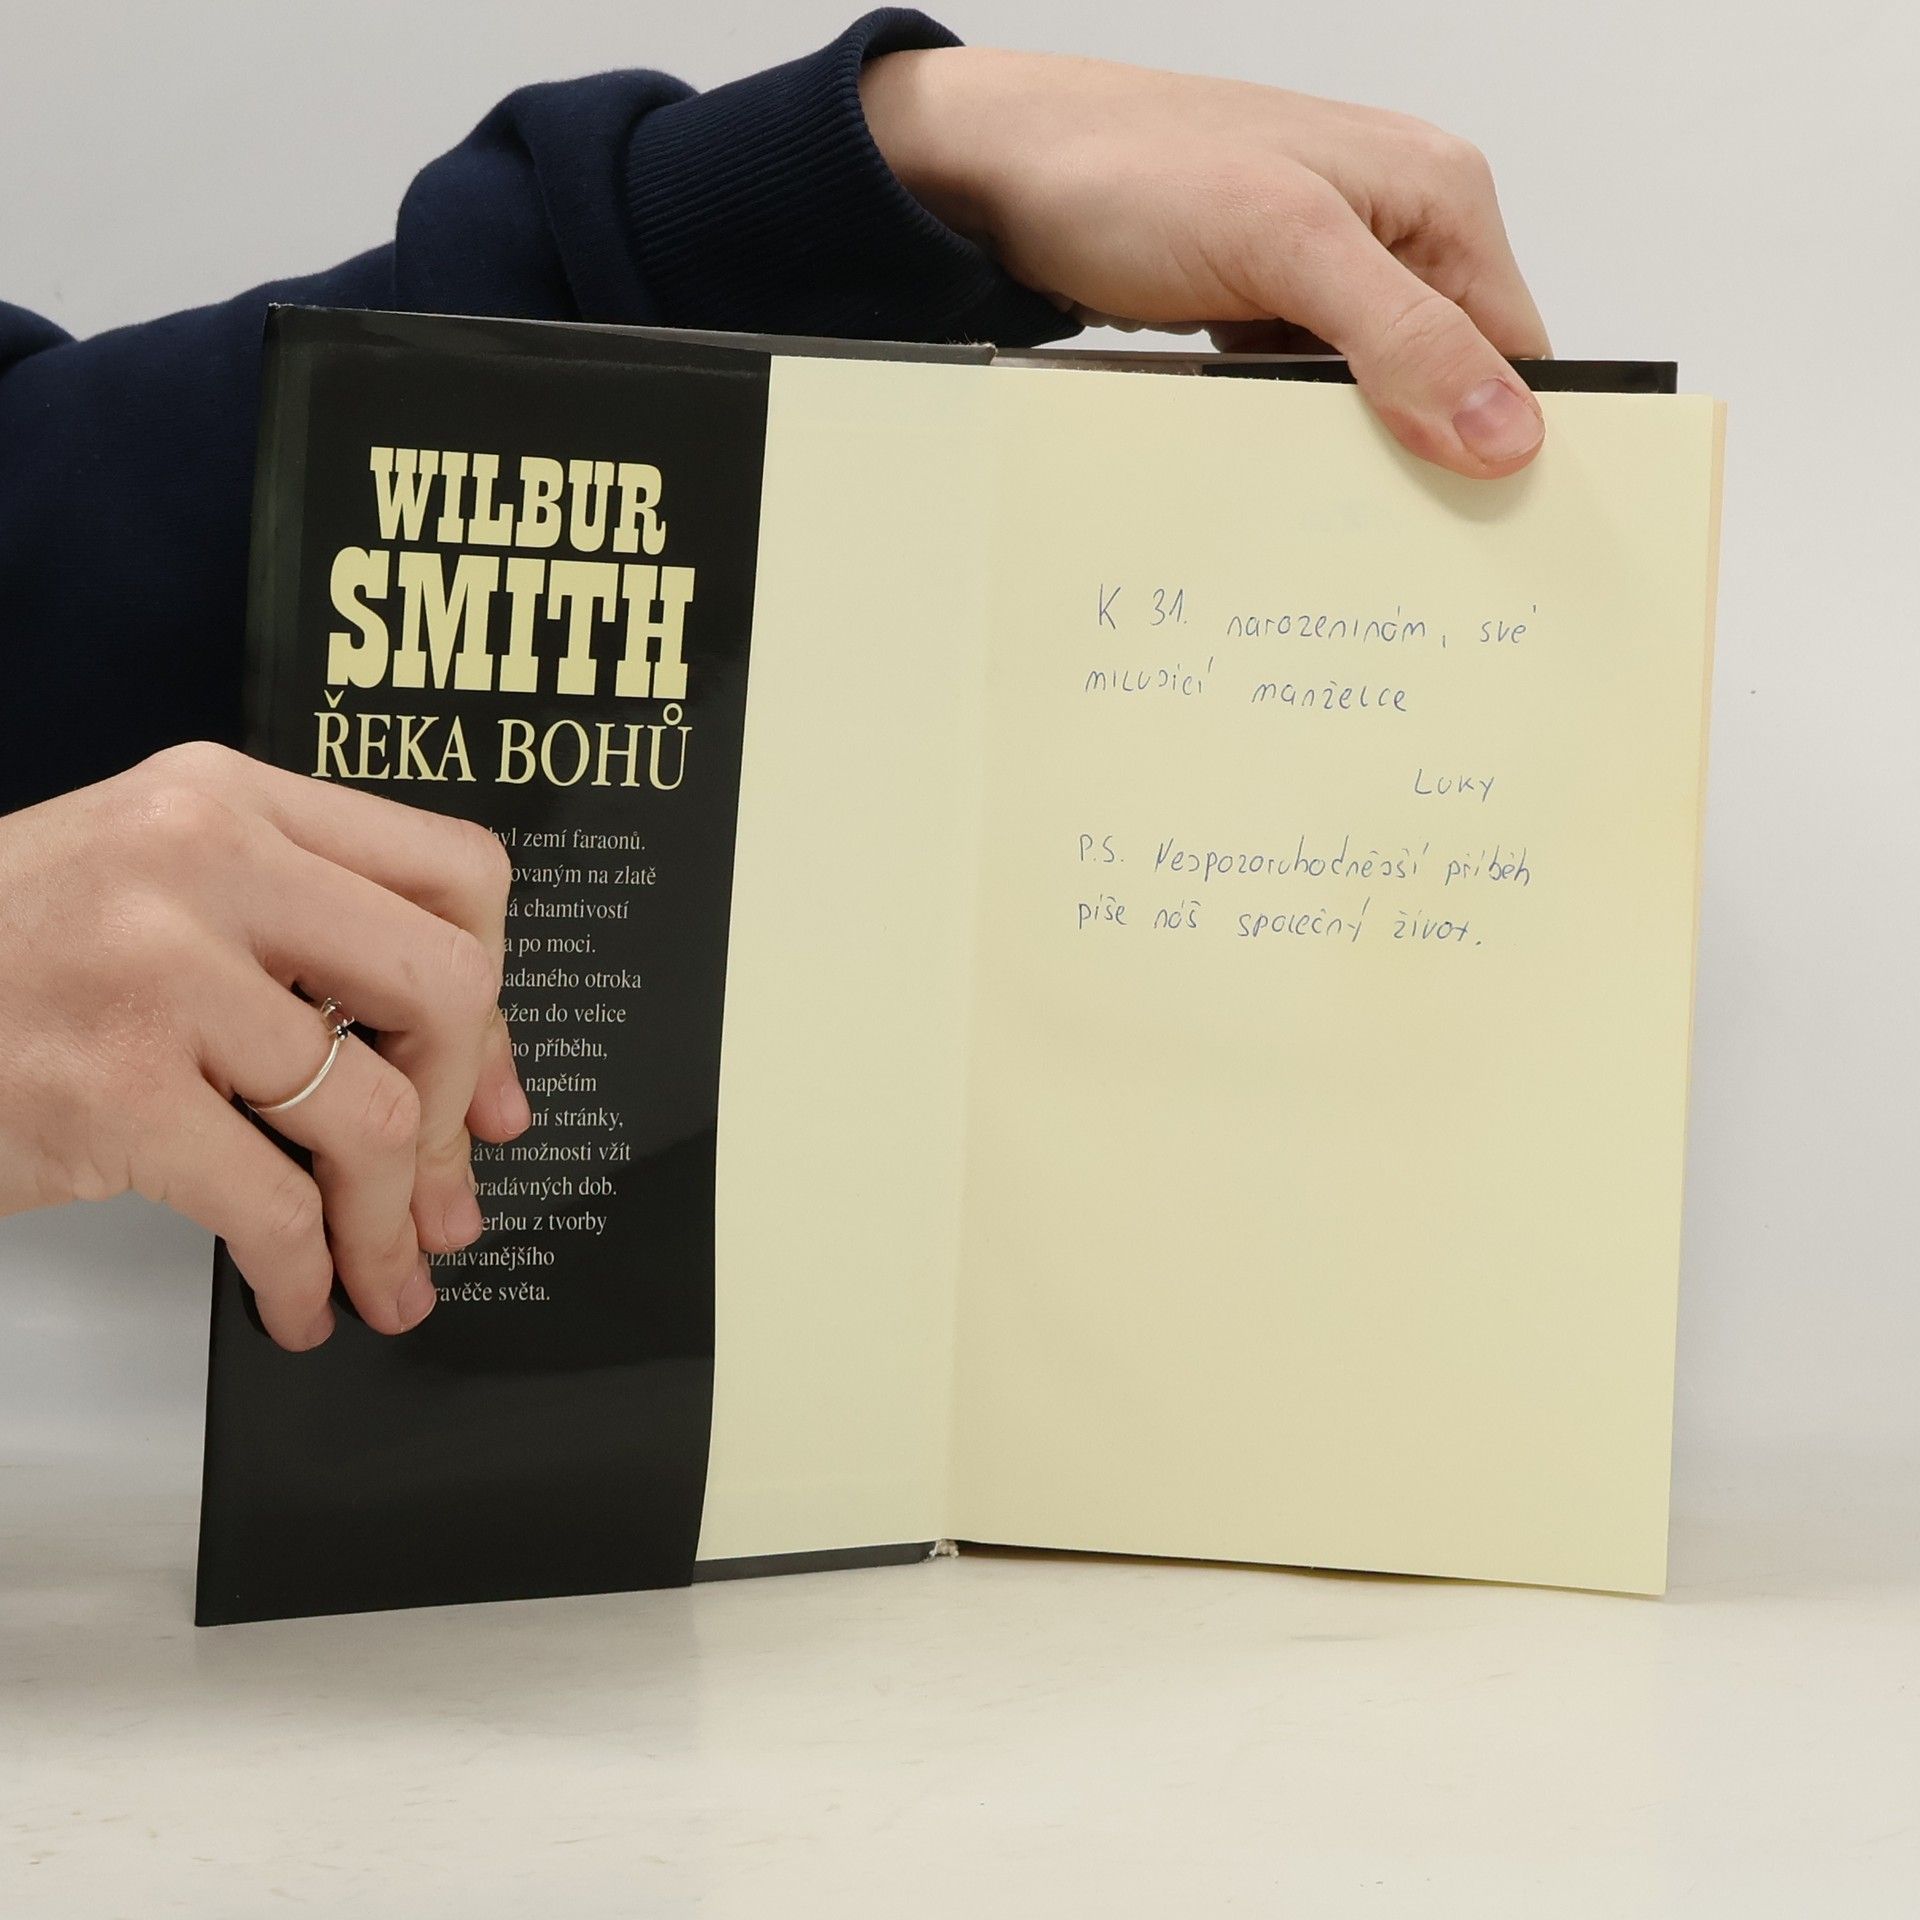 WILBUR
SMITH
ŘEKA BOHŮ
byl zemí faraonů.
ovaným na zlatě
á chamtivostí
a po moci.
adaného otroka
ažen do velice
ho příběhu,
napětím
ní stránky,
ává možnosti vžít
pradávných dob.
erlou z tvorby
uznávanějšího
ravěče světa.
K 31. narozeninám, své
milující manželce
Luky
P.S. Nejpozoruhodnější příběh
píše náš společný život.